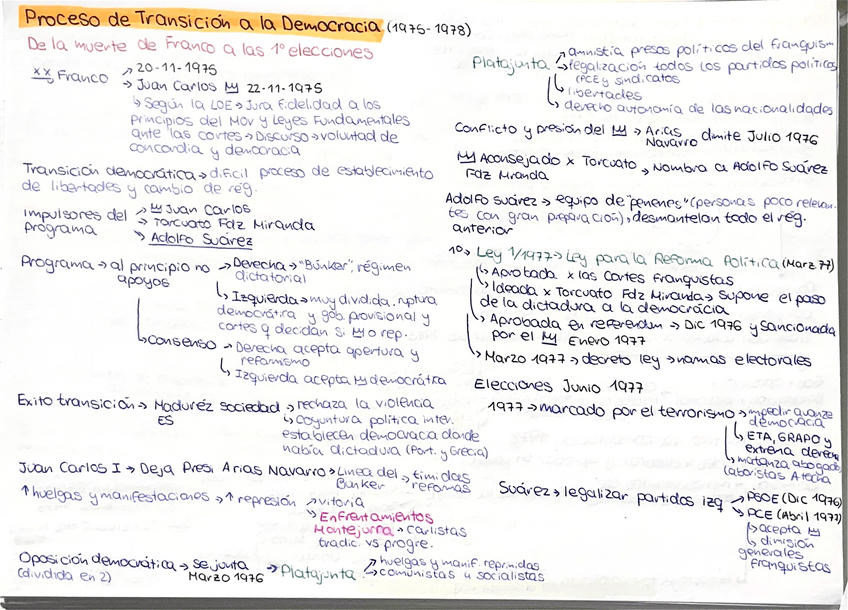 Proceso de Transición a la Democracia (1975-1978)
De la muerte de Franco a las 1º elecciones
xx Franco → 20-11-1975
→ Juan Carlos 22-11-1975
↳ Según la LOE → Jura fidelidad a los
principios del Mov y Leyes Fundamentales
ante las cortes → Discurso → voluntad de
concordia y democracia
Transición democrática → difícil proceso de establecimiento
de libertades y cambio de rég.
Impulsores del → Juan Carlos
programa → Torcuato Fdz Miranda
→ Adolfo Suárez
Programa → al principio no → Derecha → "Búnker", régimen
apoyos dictatorial
↳ Izquierda → muy dividida, ruptura
democrática y gob. provisional y
cortes q decidan si o rep.
↳ consenso → Derecha acepta apertura y
reformismo
↳ Izquierda acepta democrática
Exito transición → Madurez sociedad → rechaza la violencia
ES ↳ Coyuntura política inter.
establecen democracia donde
había dictadura (Port. y Grecia)
Juan Carlos I → Deja Presi Arias Navarro → Linea del → timidas
Búnker reformas
↑ huelgas y manifestaciones → ↑ represión → vitoria
→ Enfrentamientos
Montejurra → carlistas
tradic. vs progre.
Oposición democrática → se junta → Platajunta → huelgas y manif. reprimidas
(dividida en 2) Marzo 1976 → comunistas y socialistas
Platajunta → amnistía presos políticos del franquism
→ legalización todos los partidos políticos
(PCE y sindicatos
↳ libertades
↳ derecho autonomía de las nacionalidades
Conflicto y presión del → Arias dimite Julio 1976
Navarro
Aconsejado x Torcuato → Nombra a Adolfo Suárez
Fdz Miranda
Adolfo Suárez → equipo de "penenes" (personas poco relevan-
tes con gran preparación), desmantelan todo el rég.
anterior
1º → Ley 1/1977 → Ley para la Reforma Política (Marz 77)
↳ Aprobada x las Cortes franquistas
↳ Ideada x Torcuato Fdz Miranda → Supone el paso
de la dictadura a la democracia
↳ Aprobada en referendum → Dic 1976 y sancionada
por el Enero 1977
↳ Marzo 1977 → decreto ley → normas electorales
Elecciones Junio 1977
1977 → marcado por el terrorismo → impedir avance
democracia
↳ ETA, GRAPO y
extrema derech
↳ matanza abogado
laboristas Atocha
Suárez → legalizar partidos izq → PSOE (Dic 1976)
→ PCE (Abril 1977)
↳ acepta
↳ dimisión
generales
franquistas